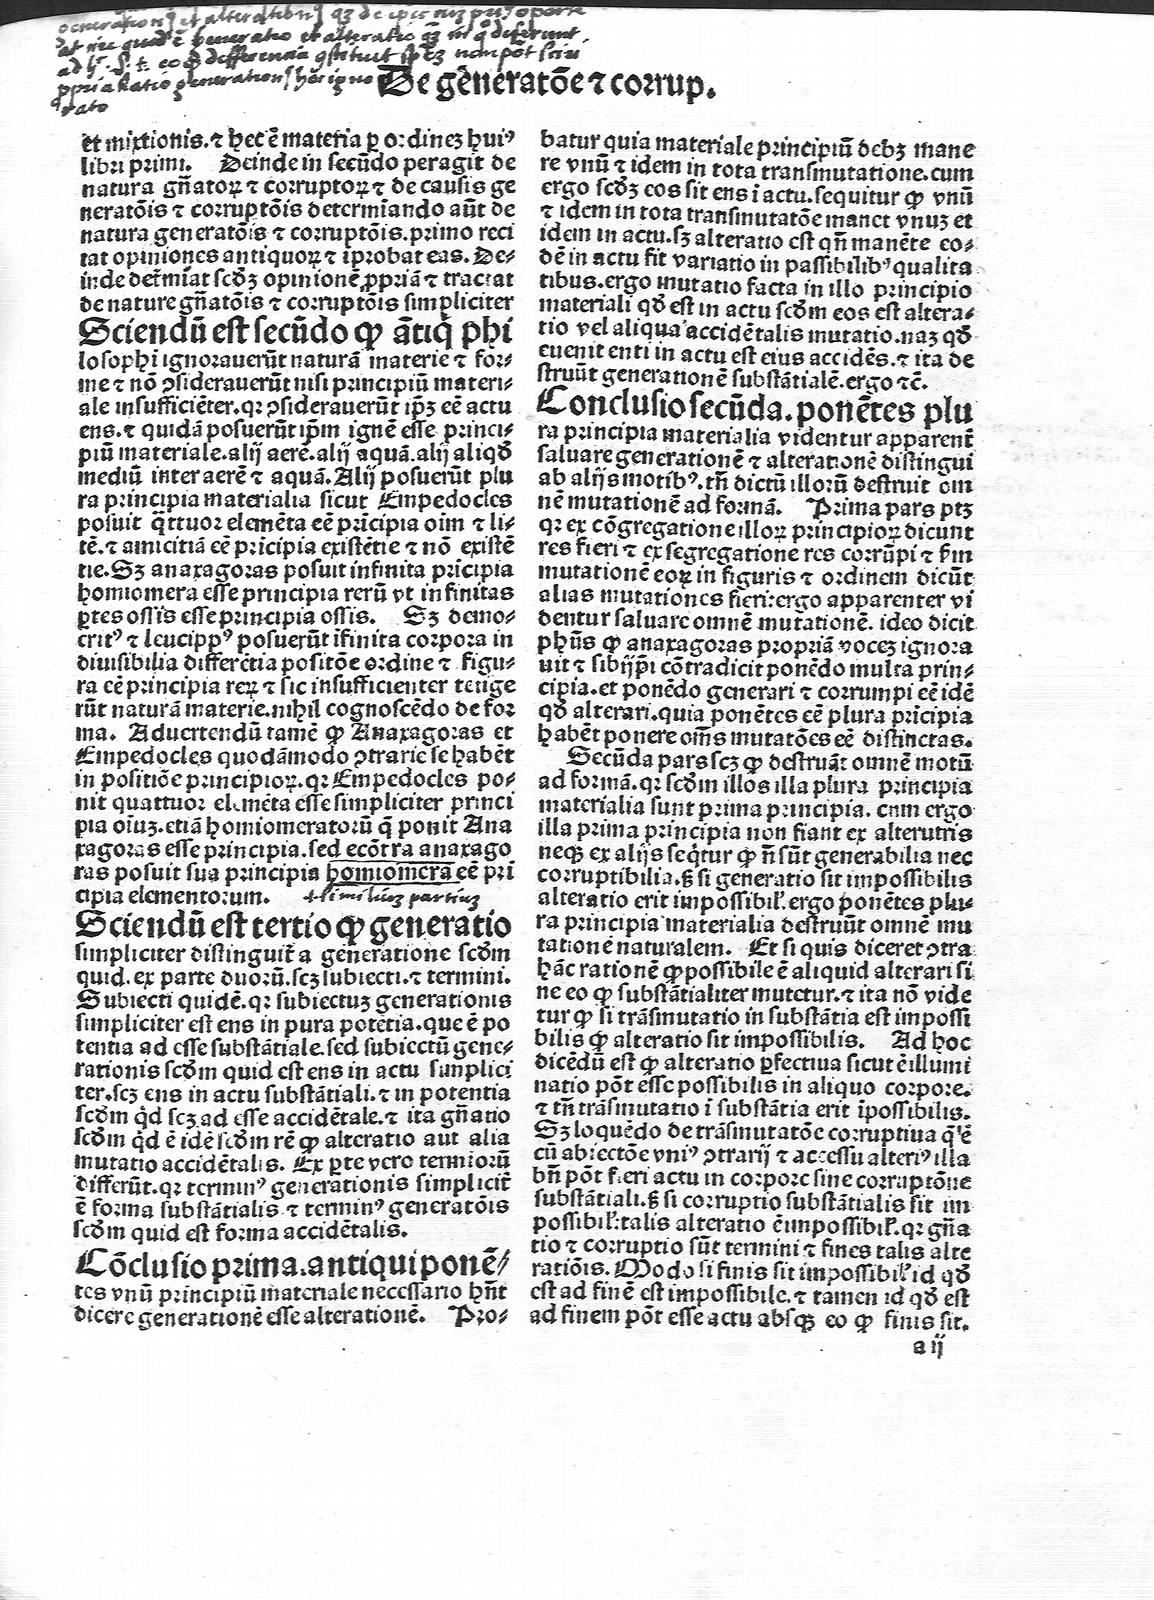 generationis et alterationis
at generatio et alteratio differunt
differentia constituit non pōt
generationis
De gēneratōe ⁊ corrup.
et mixtionis.⁊ hec ē materia ꝑ ordineꝫ huiꝰ
libri primi. Deinde in secūdo peragit de
natura gn̄atoꝝ ⁊ corruptoꝝ ⁊ de causis ge
neratōis ⁊ corruptōis determīando aūt de
natura generatōis ⁊ corruptōis.primo reci
tat opiniones antiquoꝝ ⁊ īprobat eas. De⸗
inde det̄mīat scd̄ꝫ opinionē ꝓpriā ⁊ tractat
de nature gn̄atōis ⁊ corruptōis simpliciter
Sciendū est secūdo ꝙ ātiq̄ phi
losophi ignorauerūt naturā materie ⁊ for⸗
me ⁊ nō ꝯsiderauerūt nisi principiū materi⸗
ale insufficiēter.qꝛ ꝯsiderauerūt ip̄ꝫ eē actu
ens.⁊ quidā posuerūt ip̄m ignē esse princi⸗
piū materiale.alij aerē.alij aquā.alij aliqd̄
mediū inter aerē ⁊ aquā. Alij posuerūt plu
ra principia materialia sicut Empedocles
posuit q̄ttuor elemēta eē prīcipia oīm ⁊ li⸗
tē.⁊ amicitiā eē prīcipia existētie ⁊ nō existē
tie. Sꝫ anaxagoras posuit infinita prīcipia
homiomera esse principia rerū vt infinitas
ꝑtes ossis esse principia ossis. Sꝫ demo⸗
critꝰ ⁊ leucippꝰ posuerūt īfinita corpora in
diuisibilia differētia positōe ordine ⁊ figu⸗
ra eē principia reꝝ ⁊ sic insufficienter tetige
rūt naturā materie.nihil cognoscēdo de for
ma. Aduertendū tamē ꝙ Anaxagoras et
Empedocles quodāmodo ꝯtrarie se habēt
in positiōe principioꝝ.qꝛ Empedocles po⸗
nit quattuor elemēta esse simpliciter princi
pia oīuꝫ.etiā homiomeratorū q̄ ponit Ana
xagoras esse principia.sed ecōtra anaxago
ras posuit sua principia homiomera eē pri
cipia elementorum. + similiuꝫ partiuꝫ
Sciendū est tertio ꝙ generatio
simpliciter distinguit̄ a generatione scd̄m
quid. ex parte duorū.scꝫ subiecti.⁊ termini.
Subiecti quidē.qꝛ subiectuꝫ generationis
simpliciter est ens in pura potētia.que ē po
tentia ad esse substātiale.sed subiectū gene⸗
rationis scd̄m quid est ens in actu simplici
ter.scꝫ ens in actu substātiali.⁊ in potentia
scd̄m q̄d scꝫ ad esse accidētale.⁊ ita gn̄atio
scd̄m q̄d ē idē scd̄m rē ꝙ alteratio aut alia
mutatio accidētalis. Ex ꝑte vero termiorū
differūt.qꝛ terminꝰ generationis simplicit̄
ē forma substātialis ⁊ terminꝰ generatōis
scd̄m quid est forma accidētalis.
Cōclusio prima.antiqui ponē⸗
tes vnū principiū materiale necessario hn̄t
dicere generationē esse alterationē. Pro⸗
batur quia materiale principiū debꝫ mane
re vnū ⁊ idem in tota transmutatione.cum
ergo scd̄ꝫ eos sit ens ī actu.sequitur ꝙ vnū
⁊ idem in tota transmutatōe manet vnuꝫ et
idem in actu.sꝫ alteratio est qn̄ manēte eo⸗
dē in actu fit variatio in passibilibꝰ qualita
tibus.ergo mutatio facta in illo principio
materiali qd̄ est in actu scd̄m eos est altera⸗
tio vel aliqua accidētalis mutatio.naꝫ qd̄
euenit enti in actu est eius accidēs.⁊ ita de
struūt generationē substātialē.ergo ⁊c̄.
Conclusio secūda.ponētes plu
ra principia materialia videntur apparent̄
saluare generationē ⁊ alterationē distingui
ab alijs motibꝰ.tn̄ dictū illorū destruit om
nē mutationē ad formā. Prima pars ptꝫ
qꝛ ex cōgregatione illoꝝ principioꝝ dicunt
res fieri ⁊ ex segregatione res corrūpi ⁊ fm̄
mutationē eoꝝ in figuris ⁊ ordinem dicūt
alias mutationes fieri:ergo apparenter vi
dentur saluare omnē mutationē. ideo dicit
phūs ꝙ anaxagoras propriā voceꝫ ignora
uit ⁊ sibijpi cōtradicit ponēdo multa prin⸗
cipia.et ponēdo generari ⁊ corrumpi eē idē
qd̄ alterari.quia ponētes eē plura prīcipia
habēt ponere om̄s mutatōes eē distinctas.
Secūda pars scꝫ ꝙ destruāt omnē motū
ad formā.qꝛ scd̄m illos illa plura principia
materialia sunt prima principia. cum ergo
illa prima principia non fiant ex alterutris
neqꝫ ex alijs seq̄tur ꝙ n̄ sūt generabilia nec
corruptibilia.ꝗ si generatio sit impossibilis
alteratio erit impossibił.ergo ponētes plu⸗
ra principia materialia destruūt omnē mu
tationē naturalem. Et si quis diceret ꝯtra
hāc rationē ꝙ possibile ē aliquid alterari si
ne eo ꝙ substātialiter mutetur.⁊ ita nō vide
tur ꝙ si trāsmutatio in substātia est impossi
bilis ꝙ alteratio sit impossibilis. Ad hoc
dicēdū est ꝙ alteratio ꝑfectiua sicut ē illumi
natio pōt esse possibilis in aliquo corpore.
⁊ tn̄ trāsmutatio ī substātia erit īpossibilis.
Sꝫ loquēdo de trāsmutatōe corruptiua q̄ ē
cū abiectōe vniꝰ ꝯtrarij ⁊ accessu alteriꝰ illa
bn̄ pōt fieri actu in corpore sine corruptōne
substātiali.ꝗ si corruptio substātialis sit im
possibił:talis alteratio ē impossibił.qꝛ gn̄a
tio ⁊ corruptio sūt termini ⁊ fines talis alte
ratiōis. Modo si finis sit impossibił id qd̄
est ad finē est impossibile.⁊ tamen id qd̄ est
ad finem pōt esse actu absqꝫ eo ꝙ finis sit.
a ij